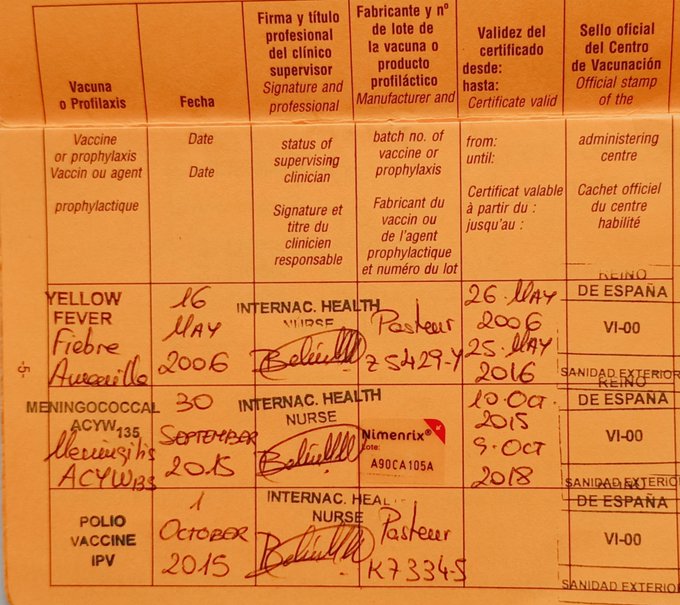 Vacuna
o Profilaxis
Fecha
Firma y título
profesional
del clínico
supervisor
Signature and
professional
Fabricante y nº
de lote de
la vacuna o
producto
profiláctico
Manufacturer and
Validez del
certificado
desde:
hasta:
Certificate valid
Sello oficial
del Centro
de Vacunación
Official stamp
of the
Vaccine
or prophylaxis
Vaccin ou agent
prophylactique
Date
Date
status of
supervising
clinician
Signature et
titre du
clinicien
responsable
batch no. of
vaccine or
prophylaxis
Fabricant du
vaccin ou
de l'agent
prophylactique
et numéro du lot
from:
until:
Certificat valable
à partir du :
jusqu'au :
administering
centre
Cachet officiel
du centre
habilité
YELLOW
FEVER
Fiebre
Amarilla
16
MAY
2006
INTERNAC. HEALTH
NURSE
Pasteur
Z5429-Y
26 MAY
2006
25 MAY
2016
REINO
DE ESPAÑA
VI-00
SANIDAD EXTERIOR
MENINGOCOCCAL
ACYW135
Meningitis
ACYW135
30
SEPTEMBER
2015
INTERNAC. HEALTH
NURSE
Nimenrix®
Lote:
A90CA105A
10 OCT.
2015
9 OCT
2018
REINO
DE ESPAÑA
VI-00
SANIDAD EXTERIOR
POLIO
VACCINE
IPV
1
OCTOBER
2015
INTERNAC. HEAL
NURSE
Pasteur
K7334-S
DE ESPAÑA
VI-00
SANIDAD EXTERIOR
-5-